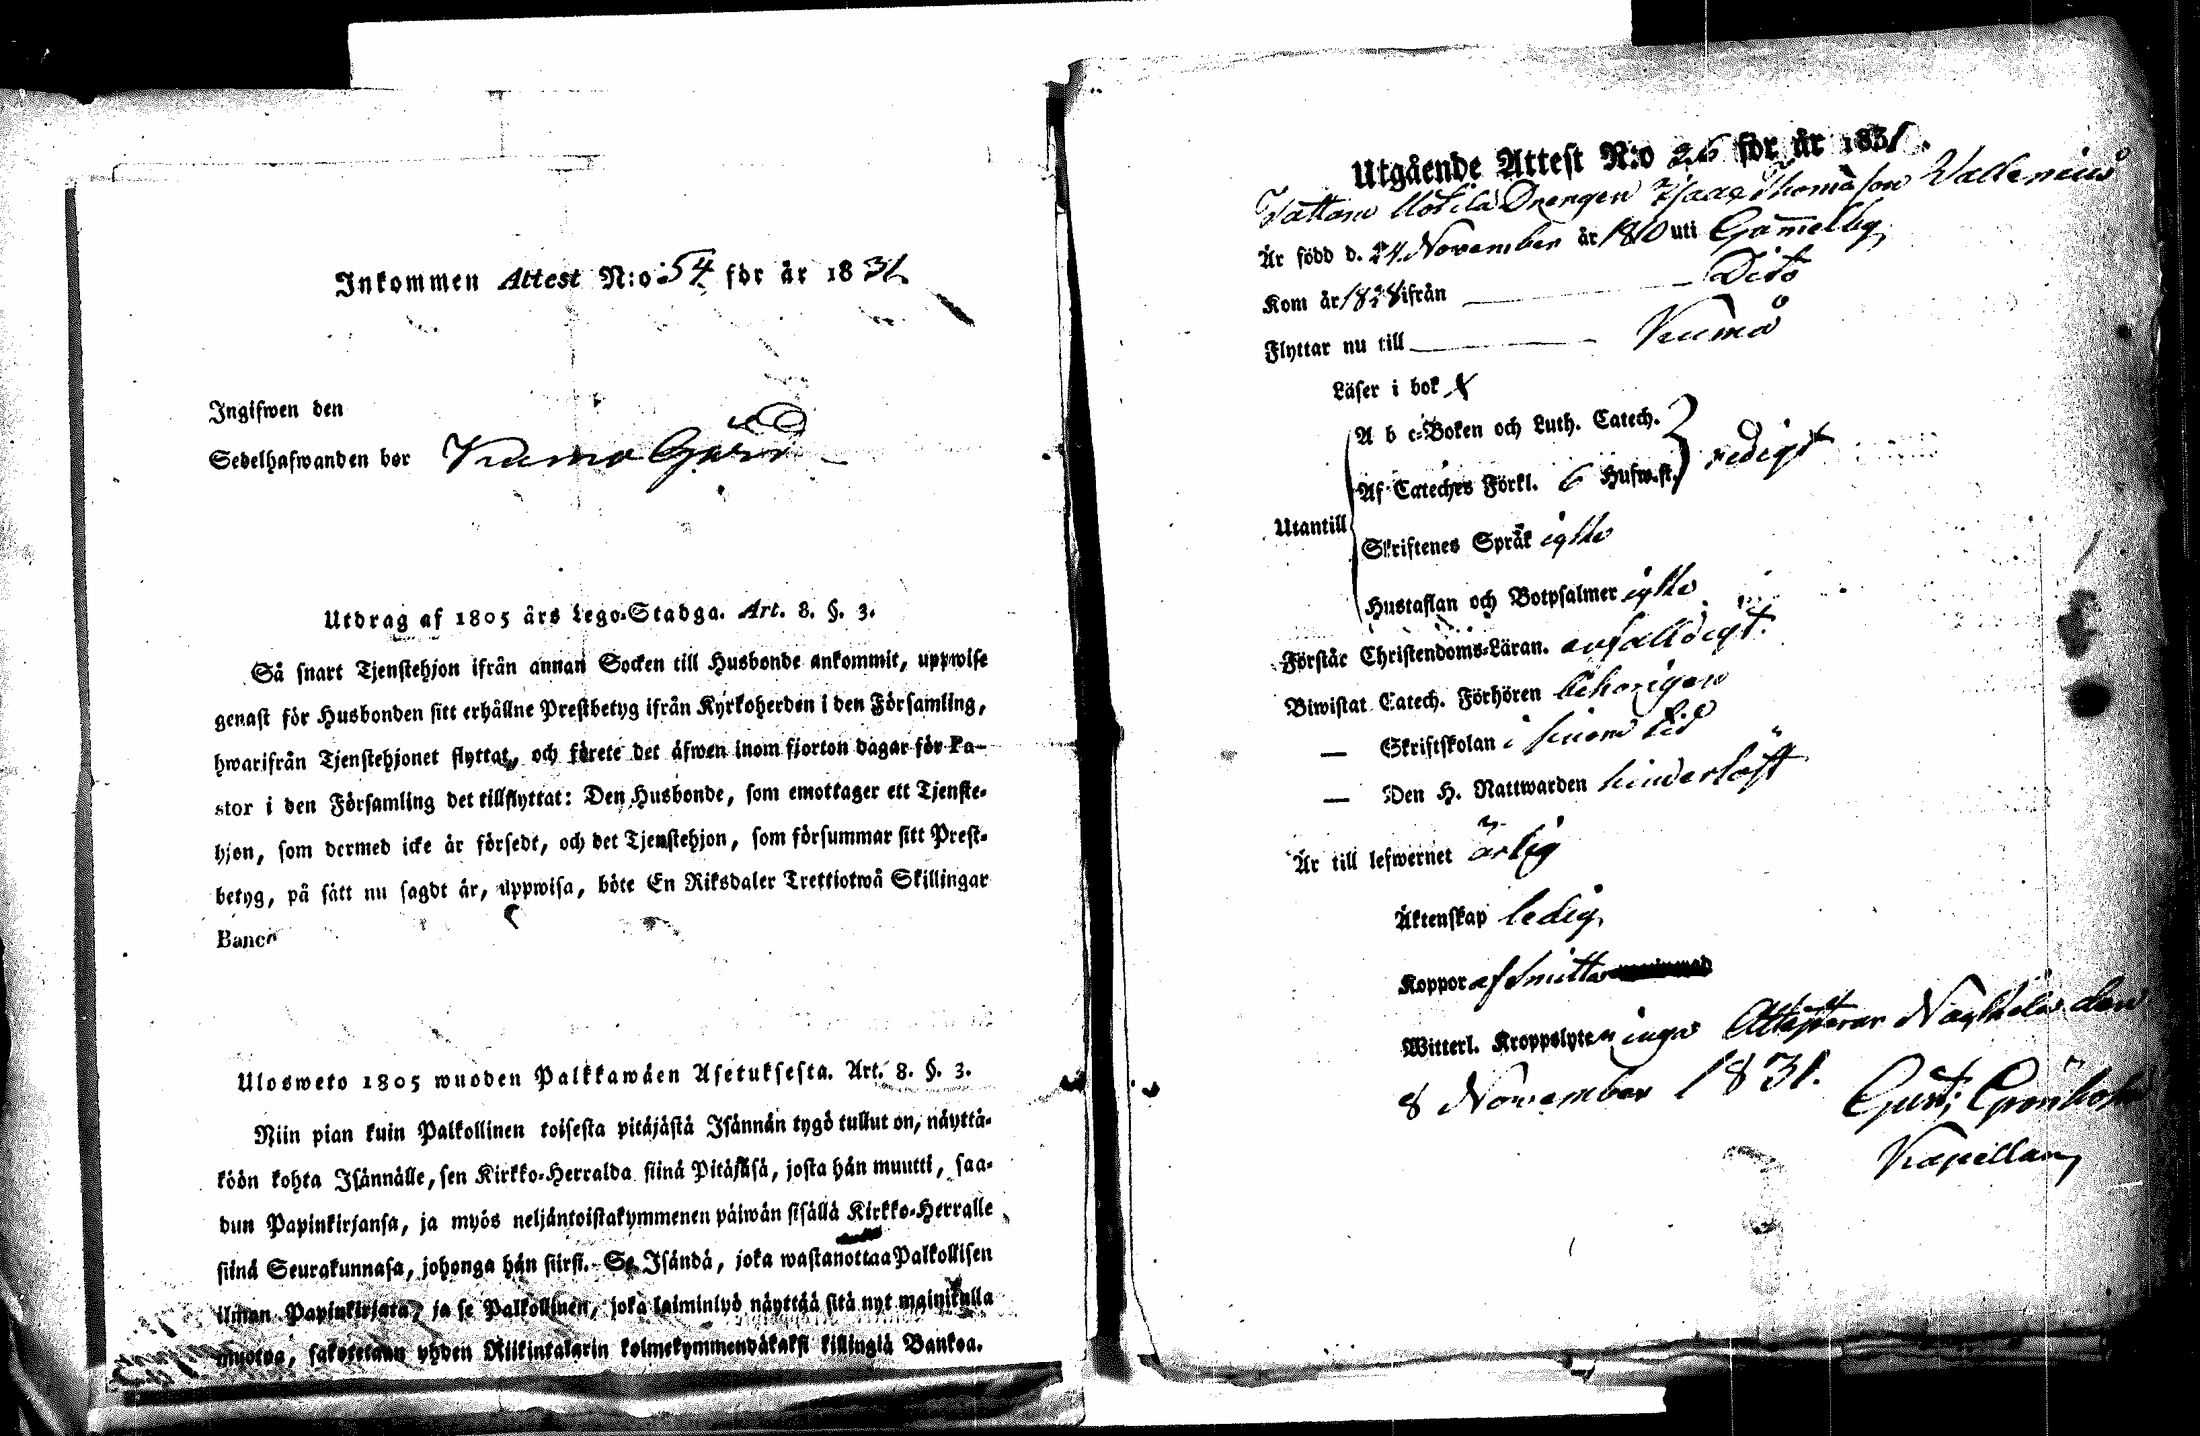 Inkommen Attest N:o 54 för år 1831.
Ingifwen den
Sedelhafwanden bor Kumo Gård
Utdrag af 1805 års Lego-Stadga. Art. 8. §. 3.
Så snart Tjenstehjon ifrån annan Socken till Husbonde ankommit, uppwise
genast för Husbonden sitt erhållne Prestbetyg ifrån Kyrkoherden i den Församling,
hwarifrån Tjenstehjonet flyttat, och förete det äfwen inom fjorton dagar för Pa-
stor i den Församling det tillflyttat: Den Husbonde, som emottager ett Tjenste-
hjon, som dermed icke är försedt, och det Tjenstehjon, som försummar sitt Prest-
betyg, på sätt nu sagdt är, uppwisa, böte En Riksdaler Trettiotwå Skillingar
Banco
Ulosweto 1805 wuoden Palkkawäen Asetuksesta. Art. 8. §. 3.
Niin pian kuin Palkollinen toisesta pitäjästä Isännän tygö tullut on, näyttä-
köön kohta Isännälle, sen Kirkko-Herralda siinä Pitäjäsä, josta hän muutti, saa-
dun Papinkirjansa, ja myös neljäntoistakymmenen päiwän sisällä Kirkko-Herralle
siinä Seurakunnasa, johonga hän siirsi. Se Isändä, joka wastanottaa Palkollisen
ilman Papinkirjata, ja se Palkollinen, joka laiminlyö näyttää sitä nyt mainitulla
muotoa, sakotetaan yhden Riikintalarin kolmekymmendäkaksi killingiä Bankoa.
Utgående Attest N:o 26 för år 1831.
Drengen Isaac Thomasson Vallenius
Är född d. 24 November år 1810 uti Gamelby
Kom år 1828 ifrån Dito
Flyttar nu till Kumo
Läser i bok
A b c-Boken och Luth. Catech.
Af Cateches Förkl. 6 Hufw.st. redigt
Utantill
Skriftenes Språk
Hustaflan och Botpsalmer
Förstår Christendoms-Läran. enfalldigt.
Biwistat Catech. Förhören behörigen
— Skriftskolan i sinom tid
— Den H. Nattwarden hinderlöst
Är till lefwernet ärlig
Äktenskap ledig
Koppor af smitta
Witterl. Kroppslyten inga Attesterar den
8 November 1831.
Gust:
Kapellan